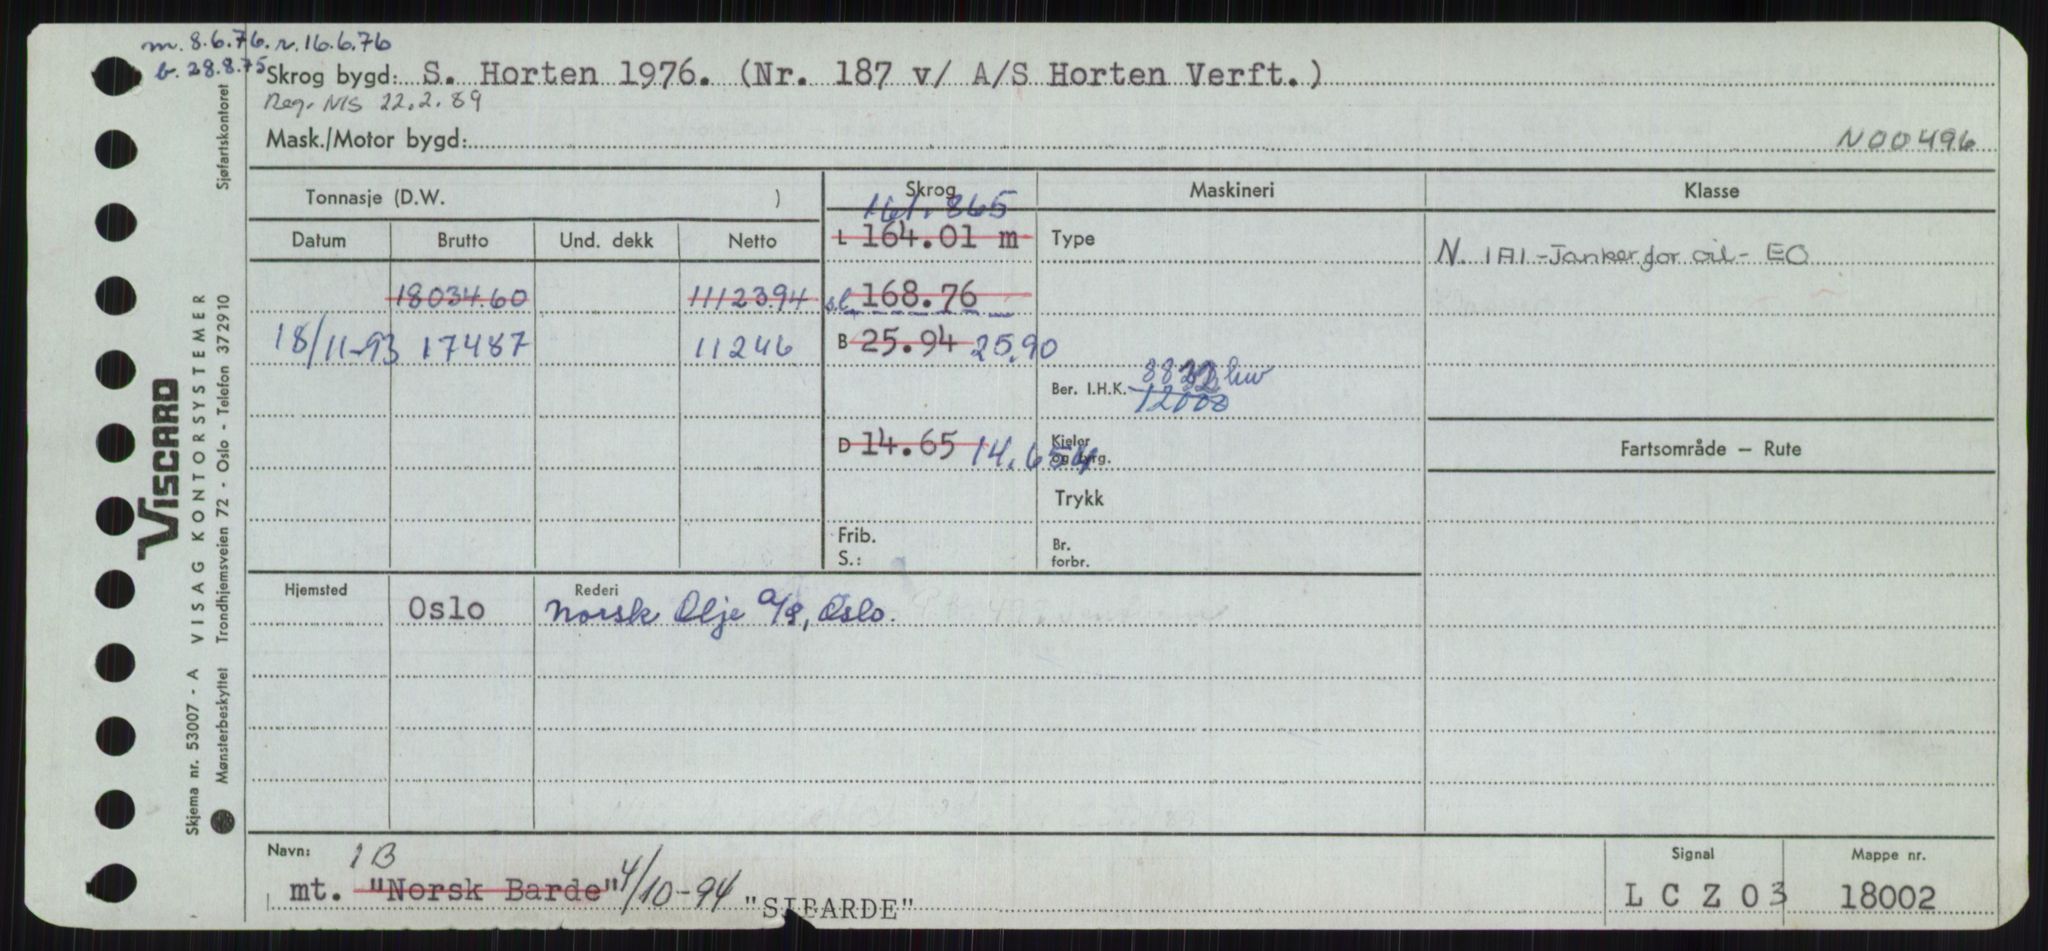 m. 8.6.76. r. 16.6.76
b. 28.8.75
Skrog bygd: S. Horten 1976. (Nr. 187 v/ A/S Horten Verft.)
Reg. NIS 22.2.89
Mask./Motor bygd:
N00496
Tonnasje (D.W. )
Skrog
Maskineri
Klasse
161.865
Datum Brutto Und. dekk Netto
L 164.01 m
Type
N. 1A1-Tanker for oil- EO
18034.60 11123.94
s.l. 168.76
18/11-93 17487 11246
B 25.94 25.90
Ber. I.H.K. kw
12000
D 14.65 14.654
Kjeler og byrg.
Fartsområde – Rute
Trykk
Frib.
S.:
Br. forbr.
Hjemsted
Rederi
Oslo Norsk Olje A/S, Oslo.
Navn: 1B
mt. "Norsk Barde" 4/10-94 "SIBARDE"
Signal
LCZO3
Mappe nr.
18002
VISCARD
Skjema nr. 53007 - A VISAG KONTORSYSTEMER
Mønsterbeskyttet Trondhjemsveien 72 - Oslo - Telefon 372910 Sjøfartskontoret